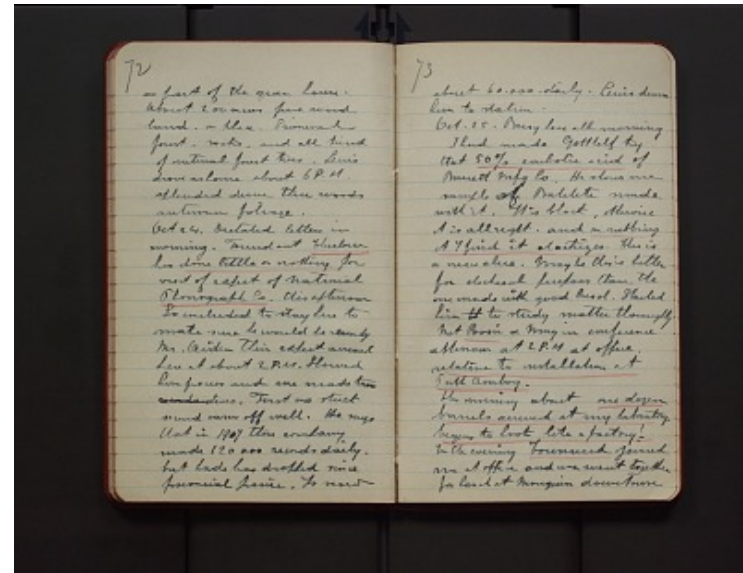 72
as part of the green house.
About 200 acres fine wood
land.
forest. rocks. and all kinds
of natural forest trees. Louis
drove us home about 6 P.M
splendid drive thru woods
autumn foliage.
Oct 24. Dictated letters in
morning. Found out Thurlow
has done little or nothing for
visit of expert of National
Phonograph Co. this afternoon
So concluded to stay here to
make sure he would be ready
Mr. Aiken their expert arrived
here at about 2 P.M. Showed
him process and one made
discs. First one stuck
second came off well. He says
that in 1907 their company
made 120 000 records daily.
but trade has dropped since
financial panic. To now
73
about 60.000 daily. Louis drove
him to station.
Oct. 25. Busy here all morning
I had made Gottlelf try
that 50% carbolic acid of
Barrett Mfg Co. He shows me
sample of Bakelite made
with it. It is black, otherwise
it is allright. and on rubbing
it I find it electrizes. This is
a new idea. Maybe this is better
for electrical purposes than the
one made with good Cresol. Started
him to study matter thoroughly.
Met in conference
afternoon at 2 P.M at office.
relative to installation at
Perth Amboy.
This morning about one dozen
barrels arrived at my laboratory
begins to look like a factory!
In the evening Townsend joined
me at office and we went together
for lunch at Mouquin downtown